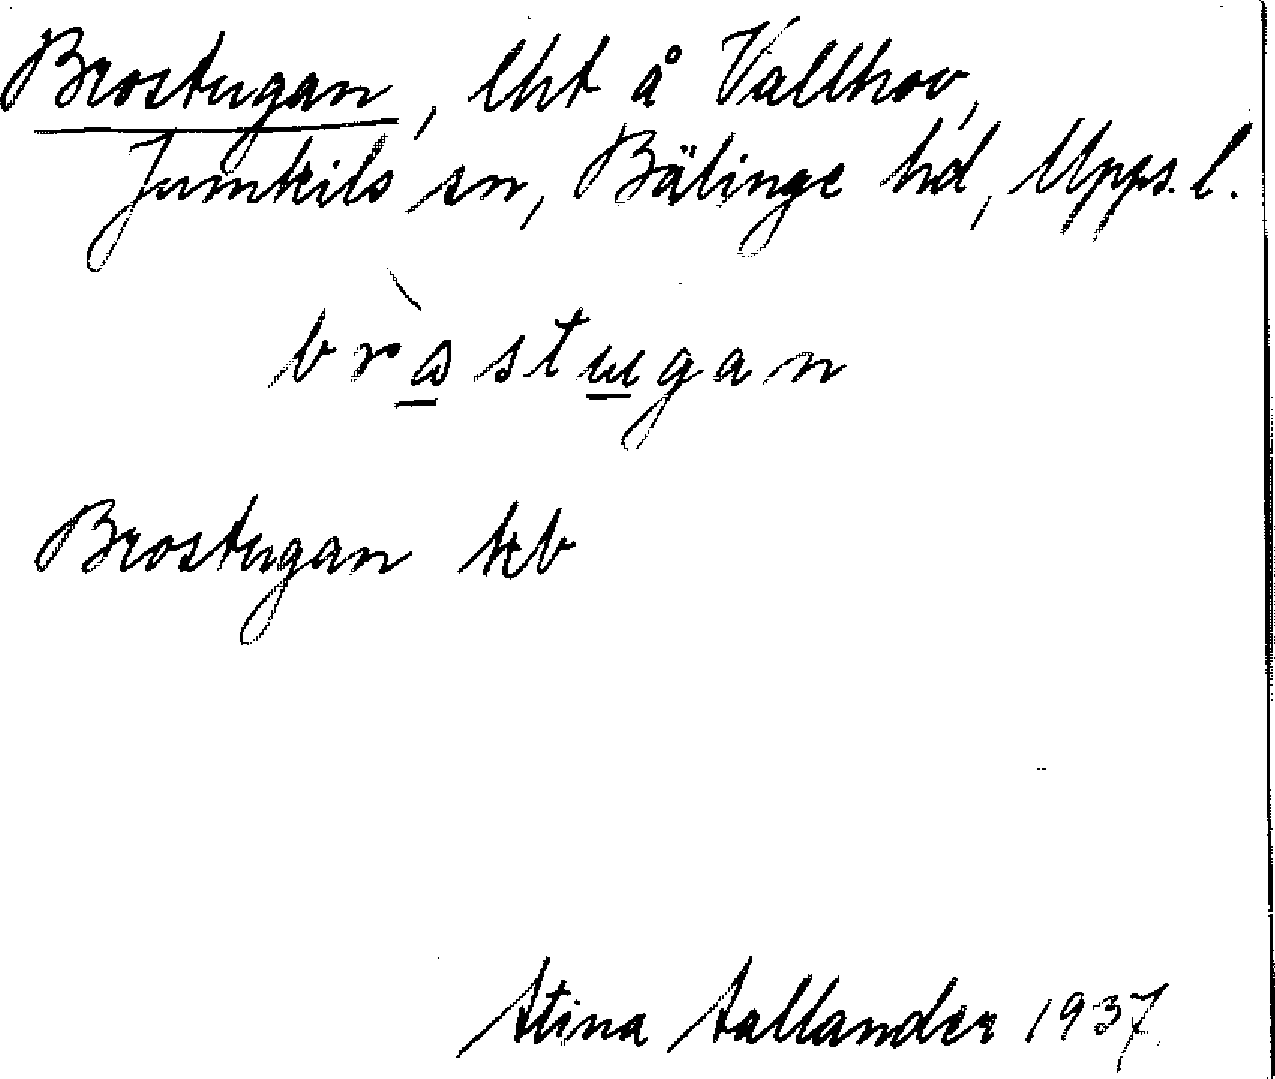 Brostugan, lht å Vallhov,
Jumkils sn, Bälinge hd, Upps. l.
Brostugan kb
Stina Sallander 1937